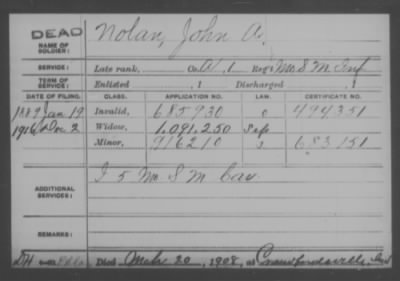 DEAD
NAME OF SOLDIER: Nolan, John A.
SERVICE: Late rank, Co. A, 1 Reg't Mo. S M Inf
TERM OF SERVICE: Enlisted , 1 Discharged , 1
DATE OF FILING. CLASS. APPLICATION NO. LAW. CERTIFICATE NO.
Jan 19 Invalid, 685930 494351
1916 Dec 2 Widow, 1,091,250
Minor, 916210 683151
ADDITIONAL SERVICES: I 5 Mo S M Cav
REMARKS:
Died Mch 20, 1908, at Crawfordsville, Ind